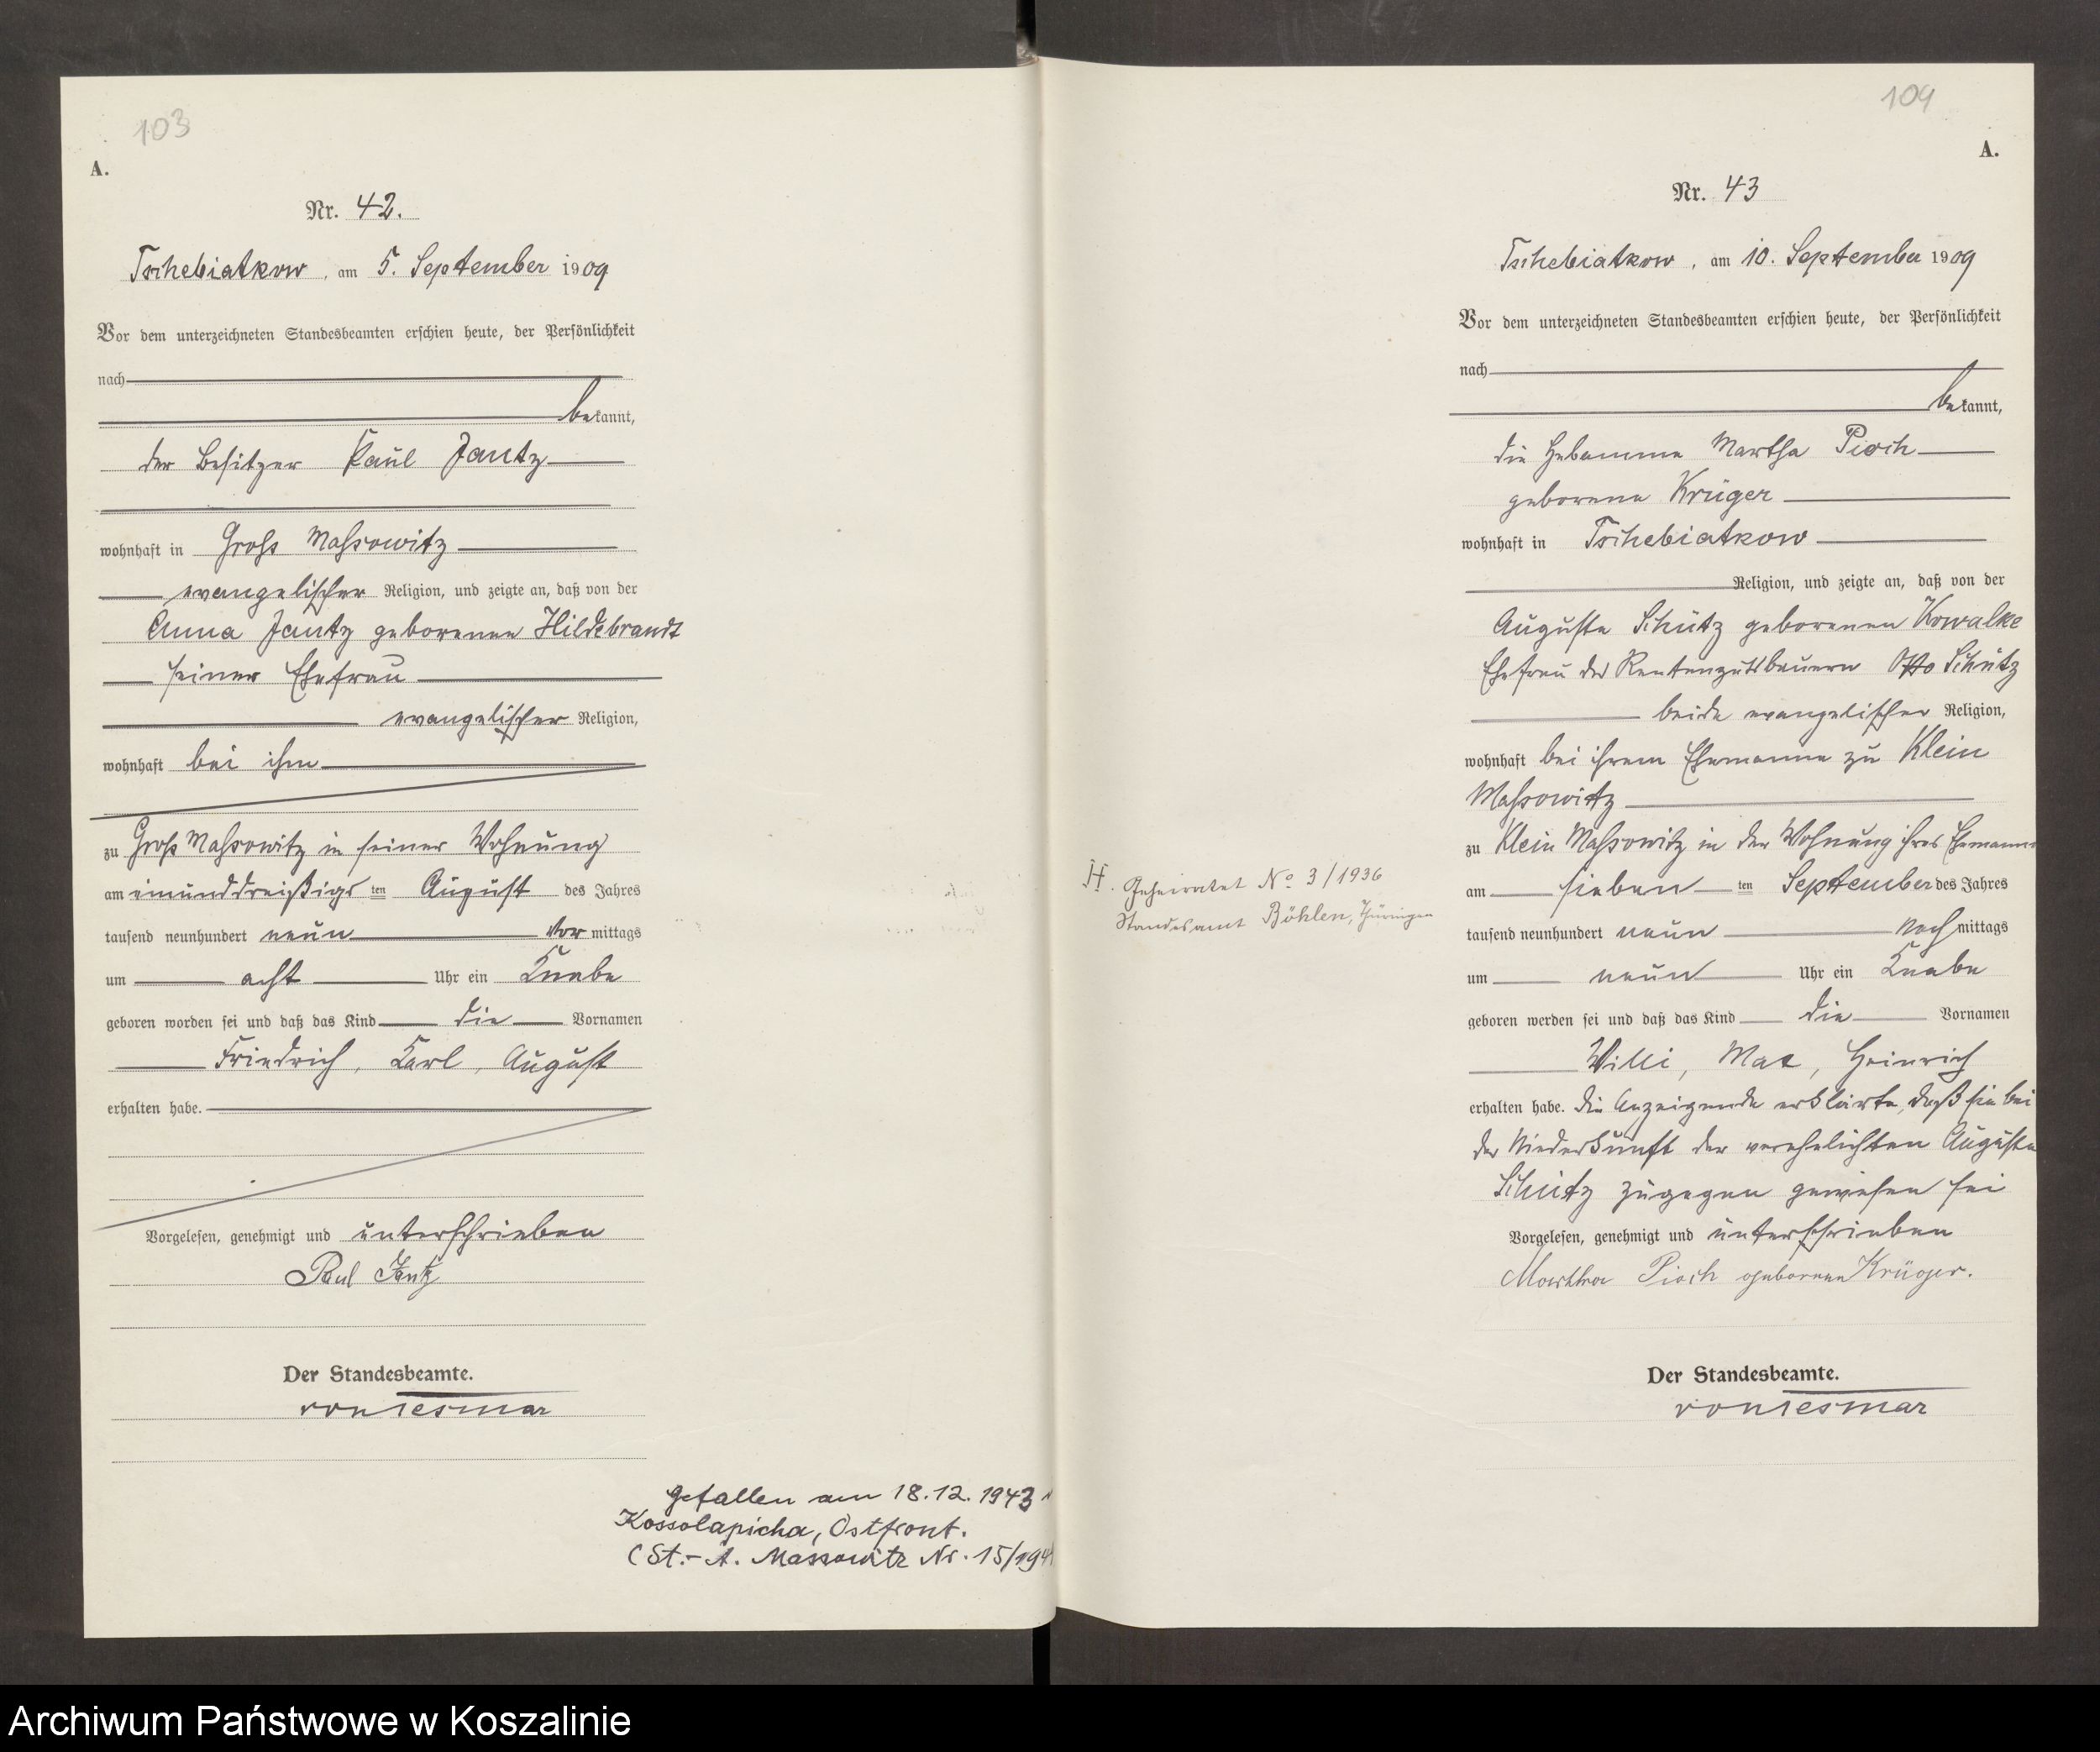 103
A.
Nr. 42.
Tschebiatkow, am 5. September 1909
Vor dem unterzeichneten Standesbeamten erschien heute, der Persönlichkeit
nach
bekannt,
der Besitzer Paul Jantz
wohnhaft in Groß Massowitz
evangelischer Religion, und zeigte an, daß von der
Anna Jantz geborenen Hildebrandt
seiner Ehefrau
evangelischer Religion,
wohnhaft bei ihm
zu Groß Massowitz in seiner Wohnung
am einunddreißigsten August des Jahres
tausend neunhundert neun vor mittags
um acht Uhr ein Knabe
geboren worden sei und daß das Kind die Vornamen
Friedrich, Karl, August
erhalten habe.
Vorgelesen, genehmigt und unterschrieben
Paul Jantz
Der Standesbeamte.
von Tesmar
Gefallen am 18.12.1943
Kossolapicha, Ostfront.
(St.-A. Massowitz Nr. 15/194
109
A.
Nr. 43
Tschebiatkow, am 10. September 1909
Vor dem unterzeichneten Standesbeamten erschien heute, der Persönlichkeit
nach
bekannt,
die Hebamme Martha Pioch
geborene Krüger
wohnhaft in Tschebiatkow
Religion, und zeigte an, daß von der
Auguste Schütz geborenen Kowalke
Ehefrau des Rentengutsbauern Otto Schütz
beide evangelischer Religion,
wohnhaft bei ihrem Ehemanne zu Klein
Massowitz
zu Klein Massowitz in der Wohnung ihres Ehemannes
am sieben ten September des Jahres
tausend neunhundert neun nach mittags
um neun Uhr ein Knabe
geboren worden sei und daß das Kind die Vornamen
Willi, Max, Heinrich
erhalten habe. Die Anzeigende erklärte, daß sie bei
der Niederkunft der verehelichten Auguste
Schütz zugegen gewesen sei
Vorgelesen, genehmigt und unterschrieben
Martha Pioch geborene Krüger.
Der Standesbeamte.
von Tesmar
H. Geheiratet No 3/1936
Standesamt Böhlen, Thüringen
Archiwum Państwowe w Koszalinie